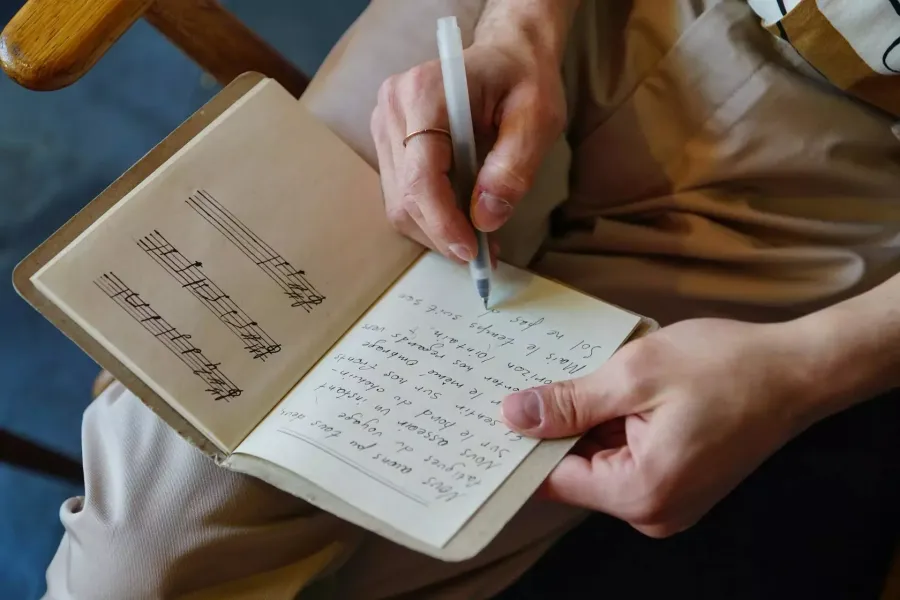 Nous avons pu tous deux
fatigués du voyage
Nous asseoir un instant
Sur le bord du chemin -
sentir sur nos fronts
le même ombrage
nos regards vers
horizon lointain ?
Mais le temps suit son
Sol ne pas